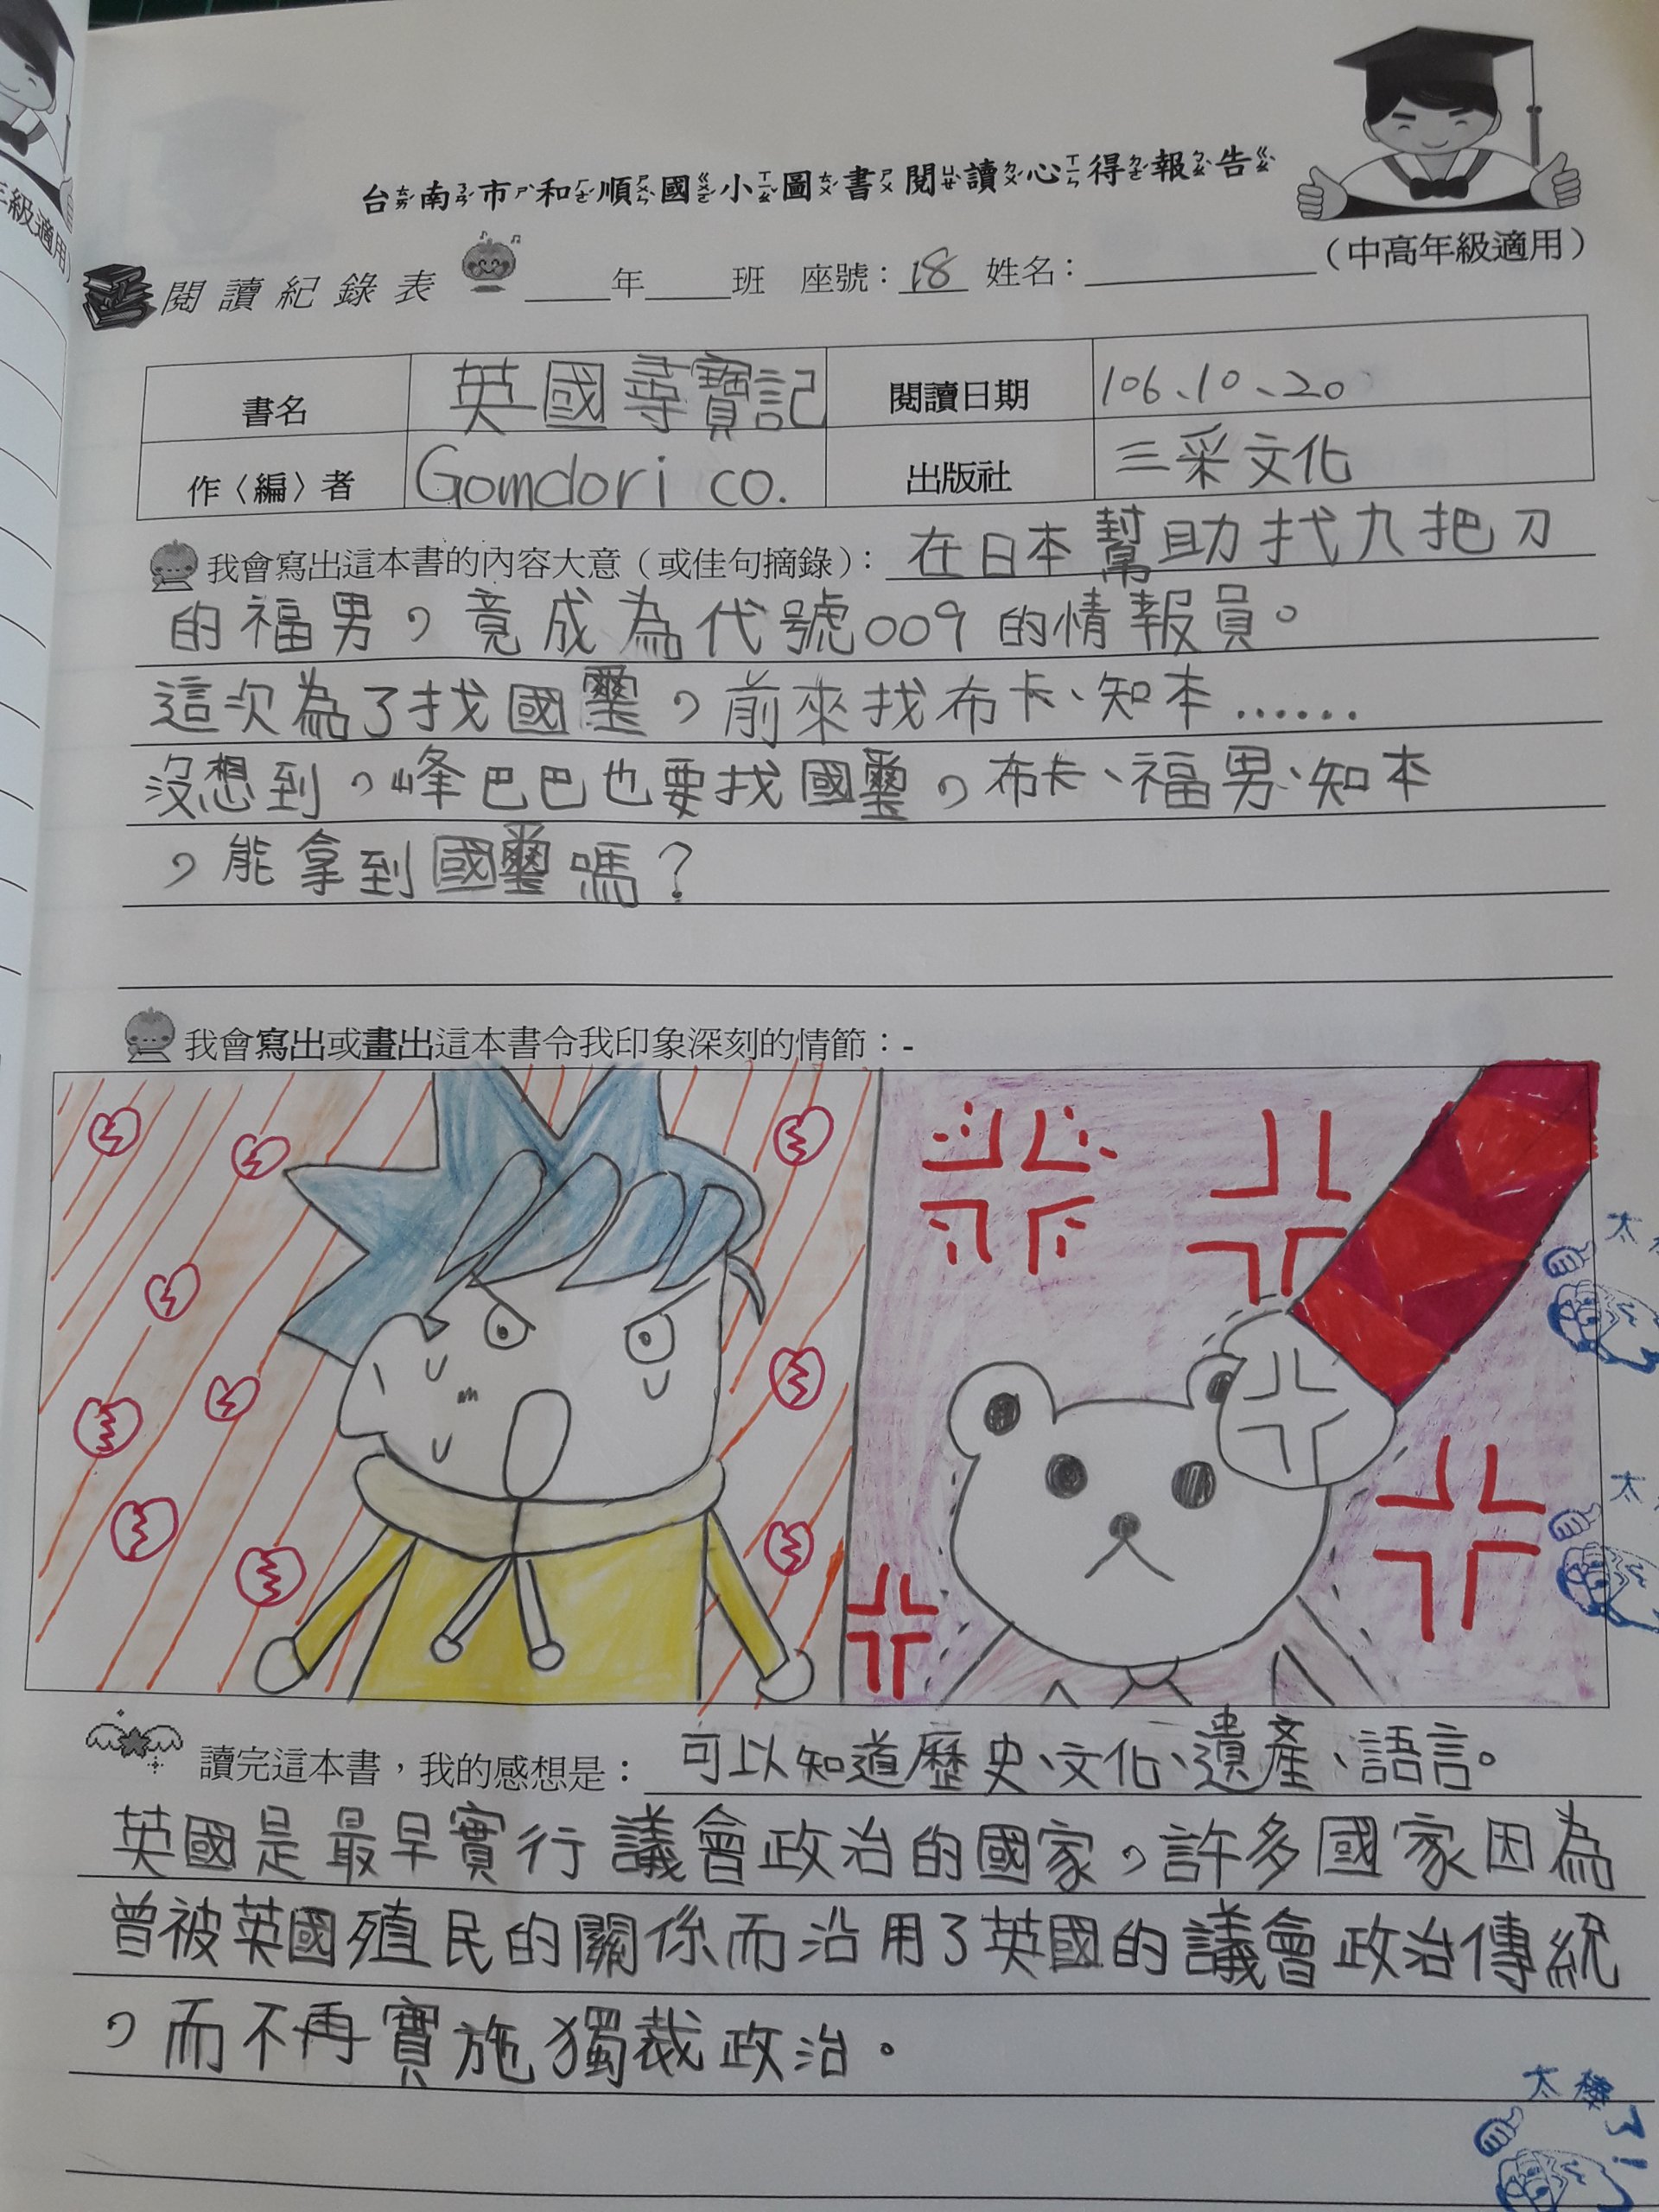 台南市和順國小圖書閱讀心得報告
(中高年級適用)
閱讀紀錄表 ____年____班 座號：18 姓名：________
書名 英國尋寶記 閱讀日期 106、10、20
作〈編〉者 Gomdori co. 出版社 三采文化
我會寫出這本書的內容大意（或佳句摘錄）：在日本幫助找九把刀
的福男，竟成為代號009的情報員。
這次為了找國璽，前來找布卡、知本……
沒想到，峰巴巴也要找國璽，布卡、福男、知本
，能拿到國璽嗎？
我會寫出或畫出這本書令我印象深刻的情節：-
太
太
讀完這本書，我的感想是：可以知道歷史、文化、遺產、語言。
英國是最早實行議會政治的國家，許多國家因為
曾被英國殖民的關係而沿用了英國的議會政治傳統
，而不再實施獨裁政治。
太棒了!
年級適用)